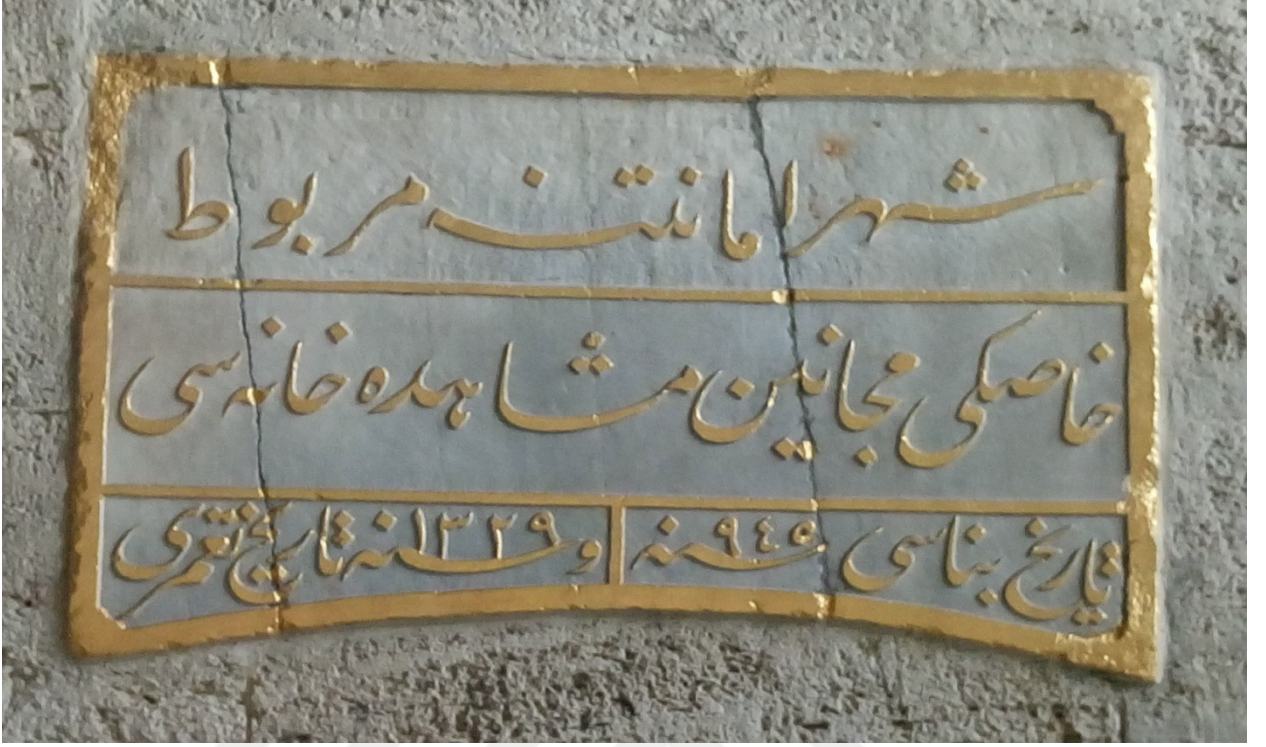 شهر امانتنه مربوط
خاصكی مجانین مشاهده خانه سی
تاریخ بناسی سنه ٩٤٥ و سنه ١٣٢٩ تاریخ تعمیری